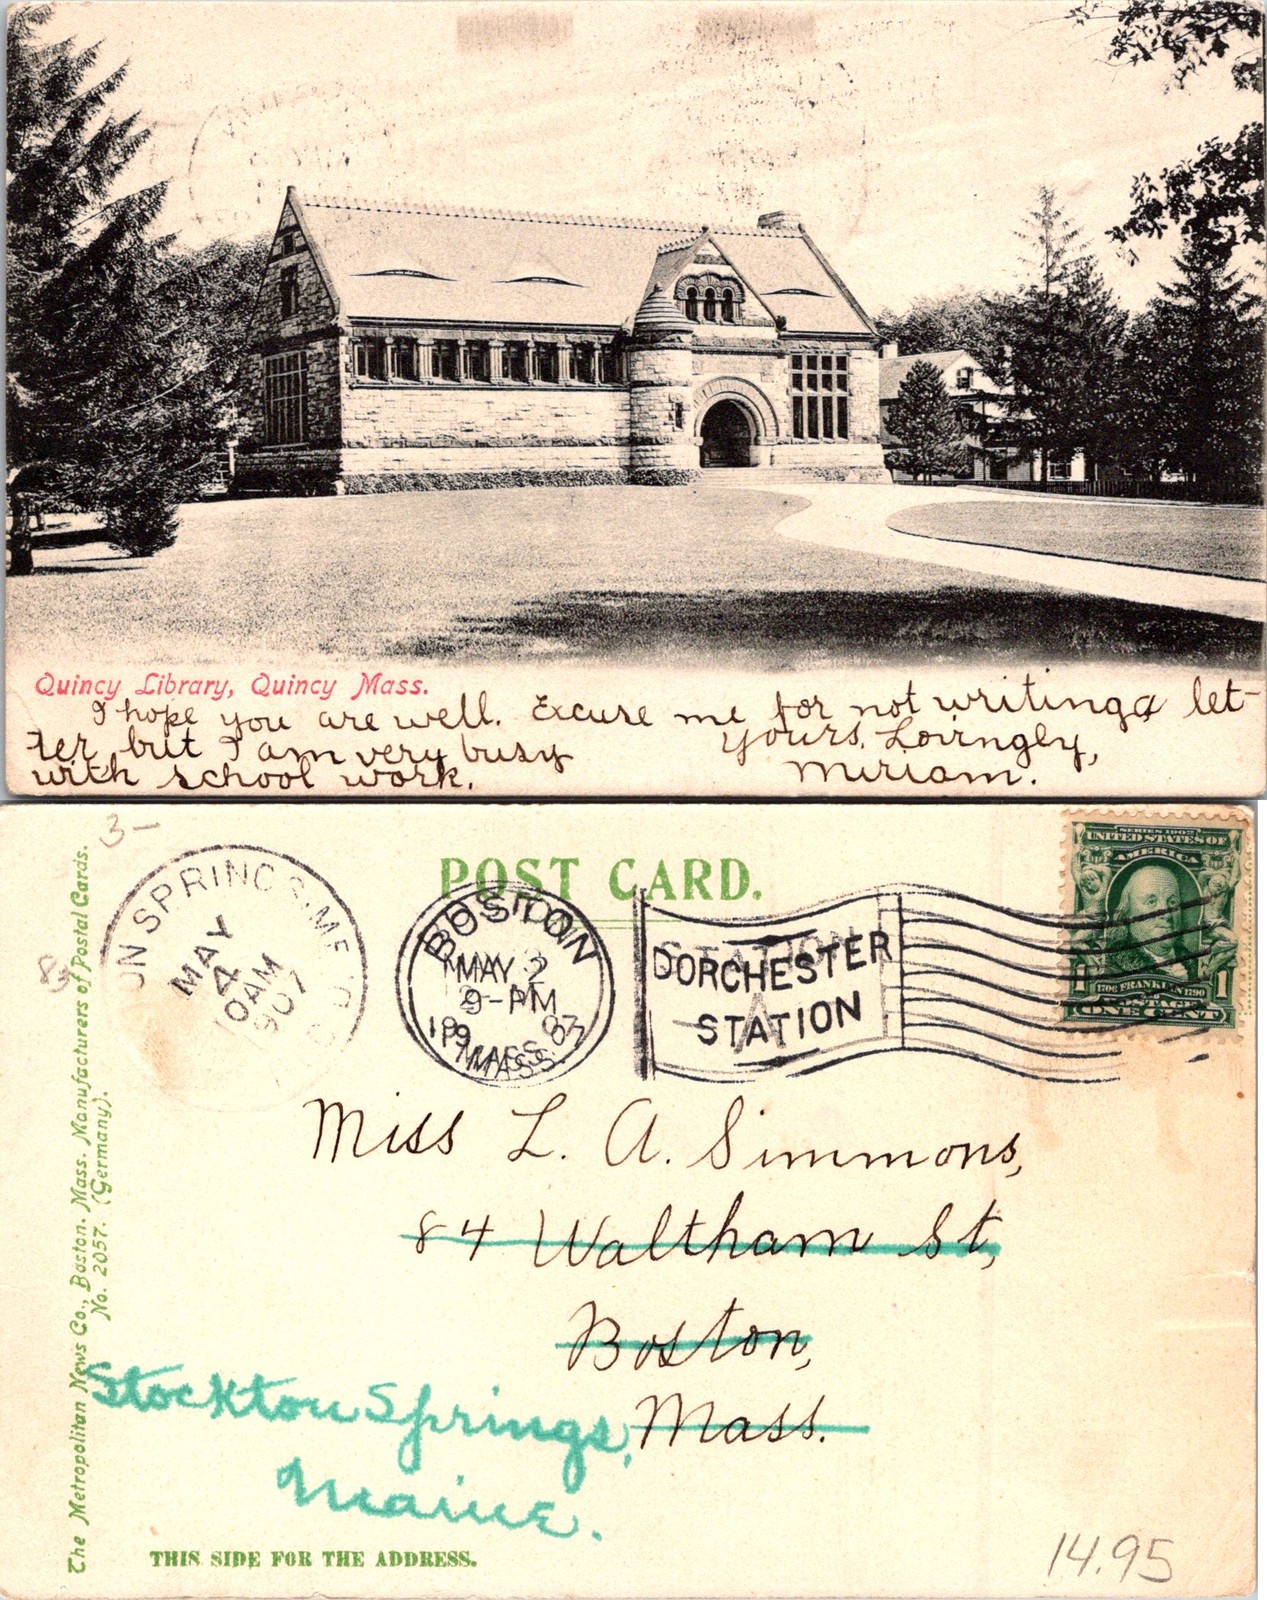 Quincy Library, Quincy Mass.
I hope you are well. Excuse me for not writing a let-
ter, but I am very busy
with school work.
Yours Lovingly,
Miriam.
3-
POST CARD.
ON SPRINGS, ME
MAY
4
10AM
1907
BOSTON
MAY 2
9-PM
MASS.
DORCHESTER
STATION
SERIES 1902
UNITED STATES OF
AMERICA
1706 FRANKLIN 1790
1 1
POSTAGE
ONE CENT
Miss L. A. Simmons,
84 Waltham St,
Boston,
Mass.
Stockton Springs,
Maine.
The Metropolitan News Co., Boston. Mass. Manufacturers of Postal Cards.
No. 2057. (Germany).
THIS SIDE FOR THE ADDRESS.
14.95